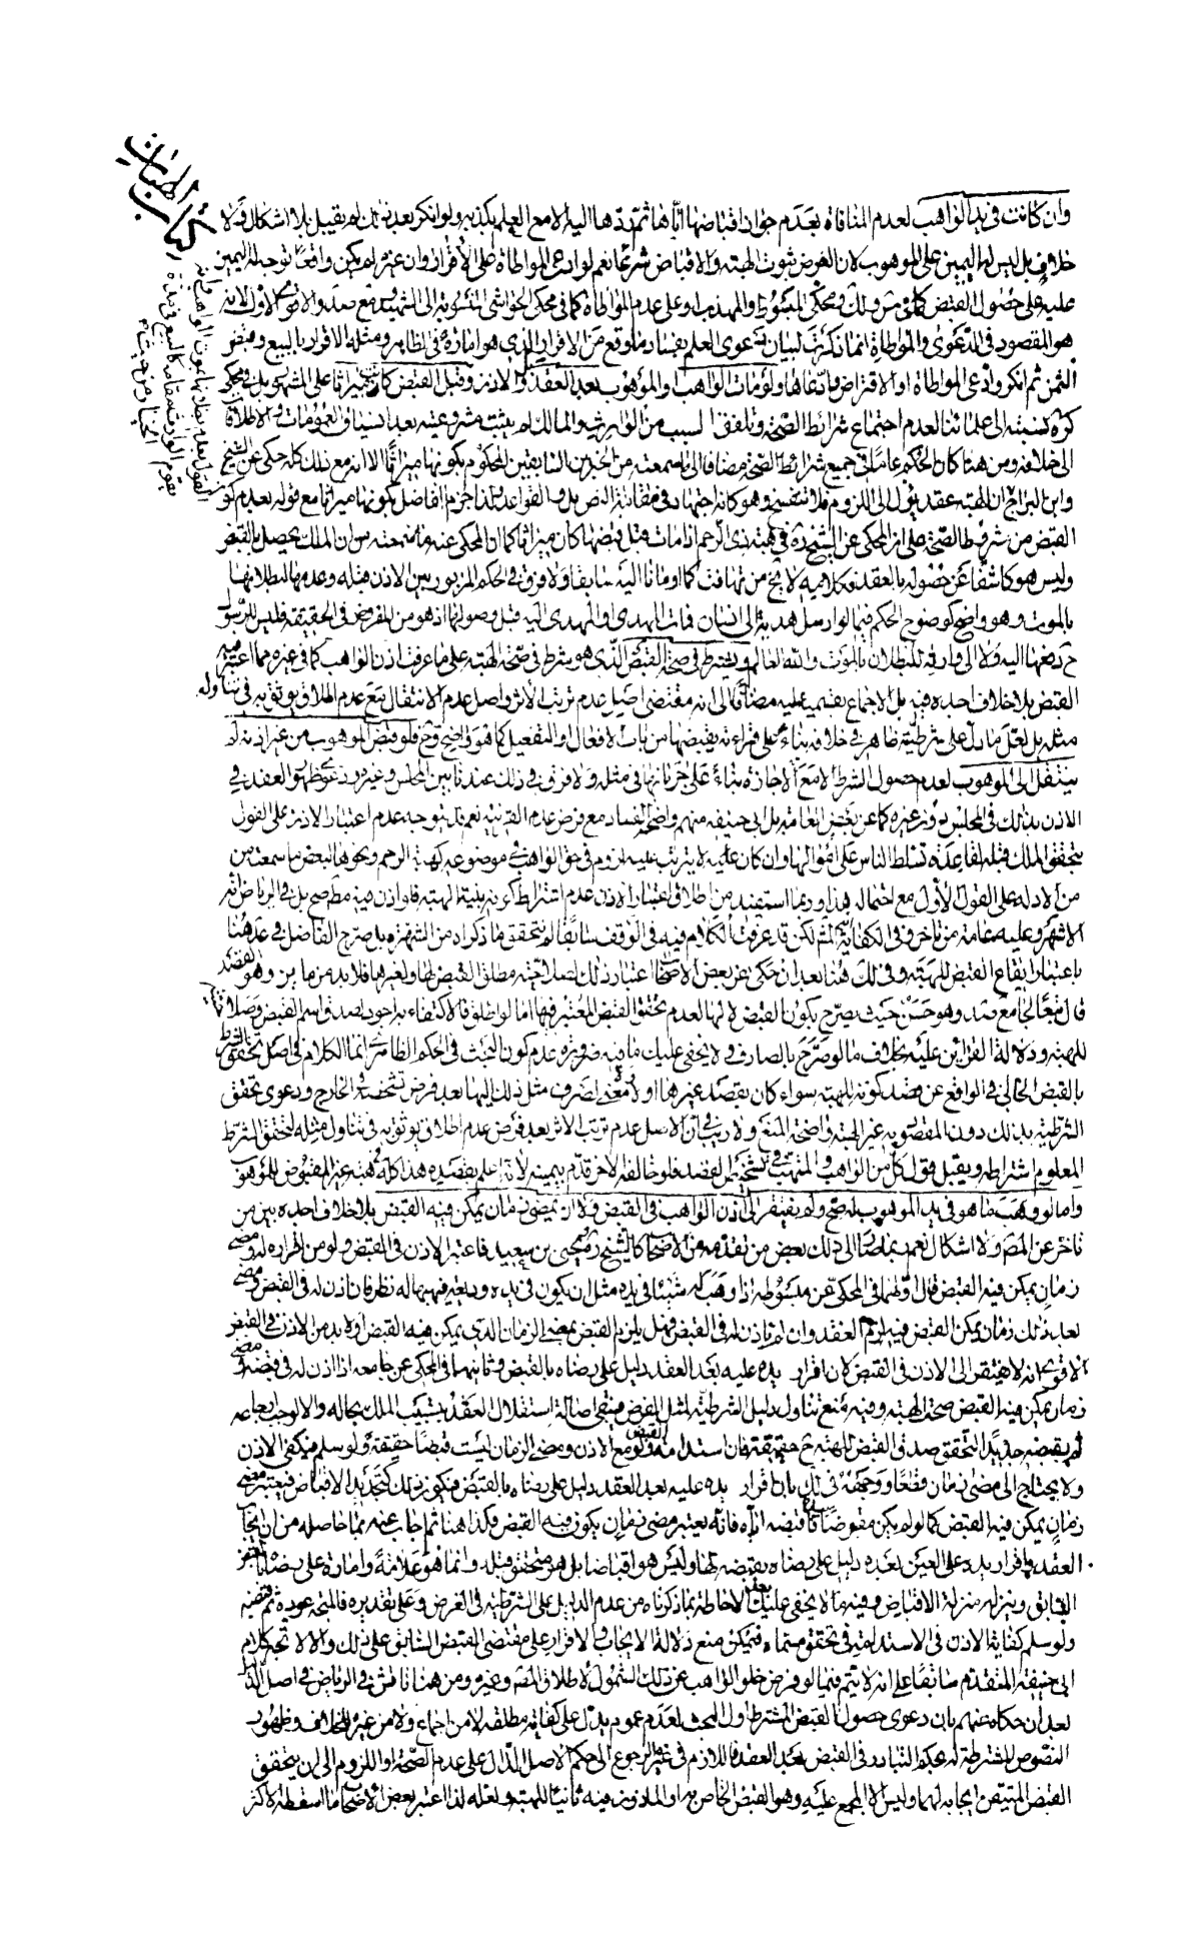 كتاب الهبات
وان كانت في يد الواهب لعدم المنافاة بعدم جواز اقباضها اياها ثم ردها اليه الا مع العلم بكذبه ولو انكر بعد ذلك لم يقبل بلا اشكال ولا
خلاف بل ليس له اليمين على الموهوب لان الفرض ثبوت الهبة والاقباض شرعا نعم لو ادعى المواطاة على الاقرار وان غيره لم يكن واقعا توجه له اليمين
عليه على حصول القبض
هو المقصود في الدعوى والمواطاة انما ذكرت لبيان دعوى العلم بفساد ما وقع من الاقرار الذي هو امارة في الظاهر ومثله الاقرار بالبيع وقبض
الثمن ثم انكر وادعى المواطاة او الاقتراض وادعاها ولو مات الواهب او الموهوب بعد العقد والاذن وقبل القبض كان ميراثا على المشهور بل
نسبته الى علمائنا لعدم اجتماع شرائط الصحة وتلفق السبب من الوارث والمالك لم يثبت مشروعيته بعد انسياق العمومات والاطلاقات
الى خلافه ومن هنا كان الحكم عاما في جميع شرائط الصحة مضافا الى ما سمعته من الخبرين السابقين المحكوم بكونها ميراثا الا انه مع ذلك كله حكي عن الشيخ
وابن البراج ان الهبة عقد يؤول الى اللزوم فلا تنفسخ وهو كانه اجتهاد في مقابلة النص بل والقواعد ولذا جزم الفاضل بكونها ميراثا مع قوله بعدم كون
القبض من شروط الصحة على ان المحكي عن الشيخ ره في هبة ذي الرحم اذا مات قبل قبضها كان ميراثا كما ان المحكي عنه ما سمعته من ان الملك يحصل بالقبض
وليس هو كاشفا عن حصوله بالعقد فكلاميه لا يخ من تهافت كما اومانا اليه سابقا ولا فرق في الحكم المزبور بين الاذن قبله وعدمها لبطلانها
بالموت وهو واضح كوضوح الحكم فيما لو ارسل هدية الى انسان فمات المهدي او المهدى اليه قبل وصولها اذ هو من المفروض في الحقيقة فليس للرسول
ح دفعها اليه ولا الى وارثه للبطلان بالموت والله العالم ويشترط في صحة القبض الذي هو شرط في صحة الهبة على ما عرفت اذن الواهب كما في غيره مما اعتبر فيه
القبض بلا خلاف اجده فيه بل الاجماع بقسميه عليه مضافا الى انه مقتضى اصل عدم ترتب الاثر واصل عدم الانتقال مع عدم اطلاق يوثق به في تناوله
مثله بل لعل ما دل على شرطيته ظاهر في خلافه بناء على قراءته يقبضها من باب الافعال والتفعيل كما هو واضح وح فلو قبض الموهوب من غير اذنه لم
ينتقل الى الموهوب لعدم حصول الشرط الا مع الاجازة بناء على جريانها في مثله ولا فرق في ذلك عندنا بين المجلس وغيره ودعوى ظهور العقد في
الاذن بذلك في المجلس دون غيره كما عن بعض العامة بل ابي حنيفة منهم واضحة الفساد مع فرض عدم القرينة نعم قد يتوجه عدم اعتبار الاذن على القول
بتحقق الملك قبله لقاعدة تسلط الناس على اموالها وان كان عليه لا يترتب عليه لزوم في حق الواهب في موضوعه كهبة الرحم ونحوها لبعض ما سمعته من
من الادلة على القول الاول مع احتماله هذا وربما استفيد من اطلاق اعتبار الاذن عدم اشتراط كونه بنية الهبة فلو اذن فيه مط صح بل في الرياض انه
الاشهر وعليه عامة من تاخر وفي الكفاية انه المشهور لكن قد عرفت الكلام فيه في الوقف سابقا ولم نتحقق ما ذكراه من الشهرة بل صرح الفاضل في عد هنا
باعتبار ايقاع القبض للهبة وفي لك هنا بعد ان حكى عن بعض الاصحاب اعتبار ذلك لصلاحية مطلق القبض لها ولغيرها فلا بد من مائز وهو القصد
قال تبعا لجامع صد وهو حسن حيث يصرح بكون القبض لا لها لعدم تحقق القبض المعتبر فيها اما لو اطلق فالاكتفاء به اجود لصدق اسم القبض وصلاحيته
للهبة ودلالة القرائن عليه بخلاف ما لو صرح بالصارف ولا يخفى عليك ما فيه ضرورة عدم كون البحث في الحكم الظاهر انما الكلام في اصل تحقق الشرط
بالقبض الخالي في الواقع عن قصد كونه للهبة سواء كان بقصد غيرها او لا ومعنى لصرف مثل ذلك اليها بعد فرض تشخصه في الخارج ودعوى تحقق
الشرطية بذلك دون المقصود به غير الهبة واضحة المنع ولا ريب في ان الاصل عدم ترتب الاثر بعد فرض عدم اطلاق يوثق به في تناول مثله لتحقق الشرط
المعلوم اشتراطه ويقبل قول كل من الواهب والمتهب في تشخيص القصد فلو خالفه الاخر قدم بيمينه لانه اعلم بقصده هذا كله في هبة غير المقبوض للموهوب
واما لو وهب ما هو في يد الموهوب له صح ولم يفتقر الى اذن الواهب في القبض ولا ان يمضي زمان يمكن فيه القبض بلا خلاف اجده بين من
تاخر عن المص ولا اشكال نعم صار الى ذلك بعض من تقدمه من الاصحاب كالشيخ ره ويحيى بن سعيد فاعتبر الاذن في القبض ولو من اقراره له ومضي
زمان يمكن فيه القبض قال اولهما في المحكي عن مبسوطه اذا وهب له شيئا في يده مثل ان يكون في يده وديعة فيهبها له نظر فان اذن له في القبض ومضى
بعد ذلك زمان يمكن القبض فيه لزم العقد وان لم ياذن له في القبض فهل يلزم القبض بمضي الزمان الذي يمكن فيه القبض او لا بد من الاذن في القبض
الاقوى انه لا يفتقر الى الاذن في القبض لان اقرار يده عليه بعد العقد دليل على رضاه بالقبض وثانيهما في المحكي عن جامعه اذا اذن له في قبضه ومضى
زمان يمكن فيه القبض صحت الهبة وفيه منع تناول دليل الشرطية لمثل الفرض فيبقى اصالة استقلال العقد بتسبيب الملك بحاله والا لوجب ارجاعه
ثم يقبضه جديدا لتحقق صدق القبض للهبة ح حقيقة فان استدامة القبض ولو مع الاذن ومضي الزمان ليست قبضا حقيقة ولو سلم فيكفي الاذن
ولا يحتاج الى مضي زمان قطعا ووجهه في لك بان اقرار يده عليه بعد العقد دليل على رضاه بالقبض فيكون ذلك كتجديد الاقباض فيعتبر مضي
زمان يمكن فيه القبض كما لو لم يكن مقبوضا سابقا فاقبضه اياه فانه يعتبر مضي زمان يكون فيه القبض فكذا هنا ثم اجاب عنه بما حاصله من ان ايجاب
العقد واقرار يده على العين بعده دليل على رضاه بقبضه لها وليس هو اقباضا بل هو متحقق قبله وانما هو علامة وامارة على رضاه بالقبض
السابق وينزله منزلة الاقباض وفيه ما لا يخفى عليك بعد الاحاطة بما ذكرناه من عدم الدليل على الشرطية في الفرض وعلى تقديره فالمتجه عوده ثم قبضه
ولو سلم كفاية الاذن في الاستدامة في تحقق مسماه فيمكن منع دلالة الايجاب والاقرار على مقتضى القبض السابق على ذلك والا لاتجه كلام
ابي حنيفة المتقدم سابقا على انه لا يتم فيما لو فرض خلو الواهب عن ذلك الشمول لاطلاق المص وغيره ومن هنا ناقش في الرياض في اصل الدليل
بعد ان حكاه عنهم بان دعوى حصول القبض المشترط اول البحث لعدم عموم يدل على كفاية مطلقه لا من اجماع ولا من غيره للخلاف وظهور
النصوص المشترطة له بحكم التبادر في القبض بعد العقد فاللازم في غيره الرجوع الى حكم الاصل الدال على عدم الصحة او اللزوم الى ان يتحقق
القبض المتيقن ايجابه لهما وليس الا المجمع عليه وهو القبض الخاص به او الماذون فيه ثانيا للهبة ولعله لذا اعتبر بعض الاصحاب ما اسقطه الاكثر